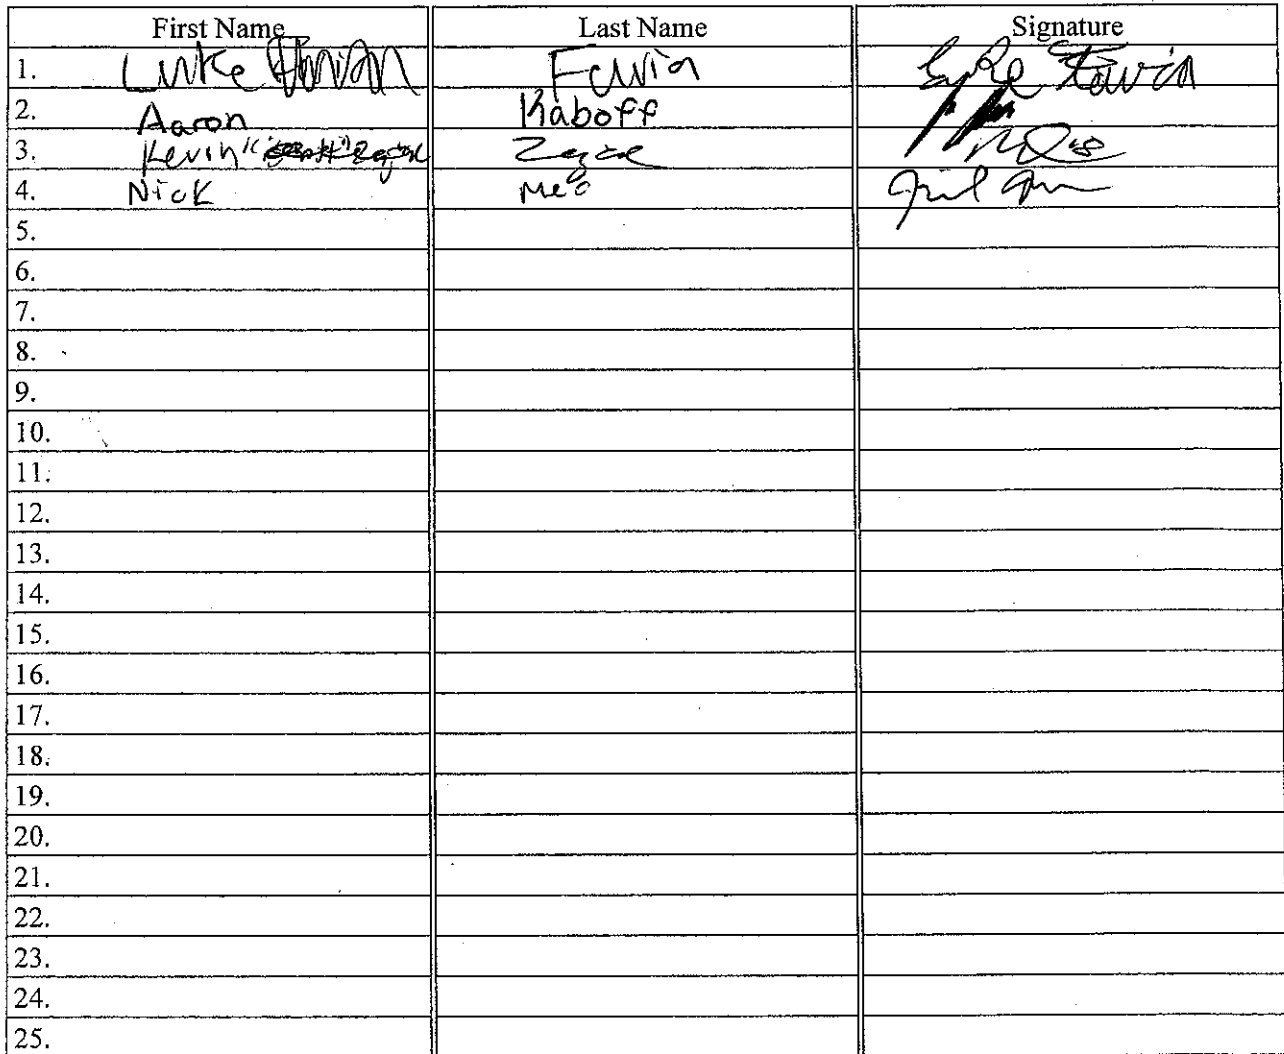 First Name Last Name Signature
1. Luke Favia Luke Favia
2. Aaron Kaboff
3. Kevin
4. Nick
5.
6.
7.
8.
9.
10.
11.
12.
13.
14.
15.
16.
17.
18.
19.
20.
21.
22.
23.
24.
25.